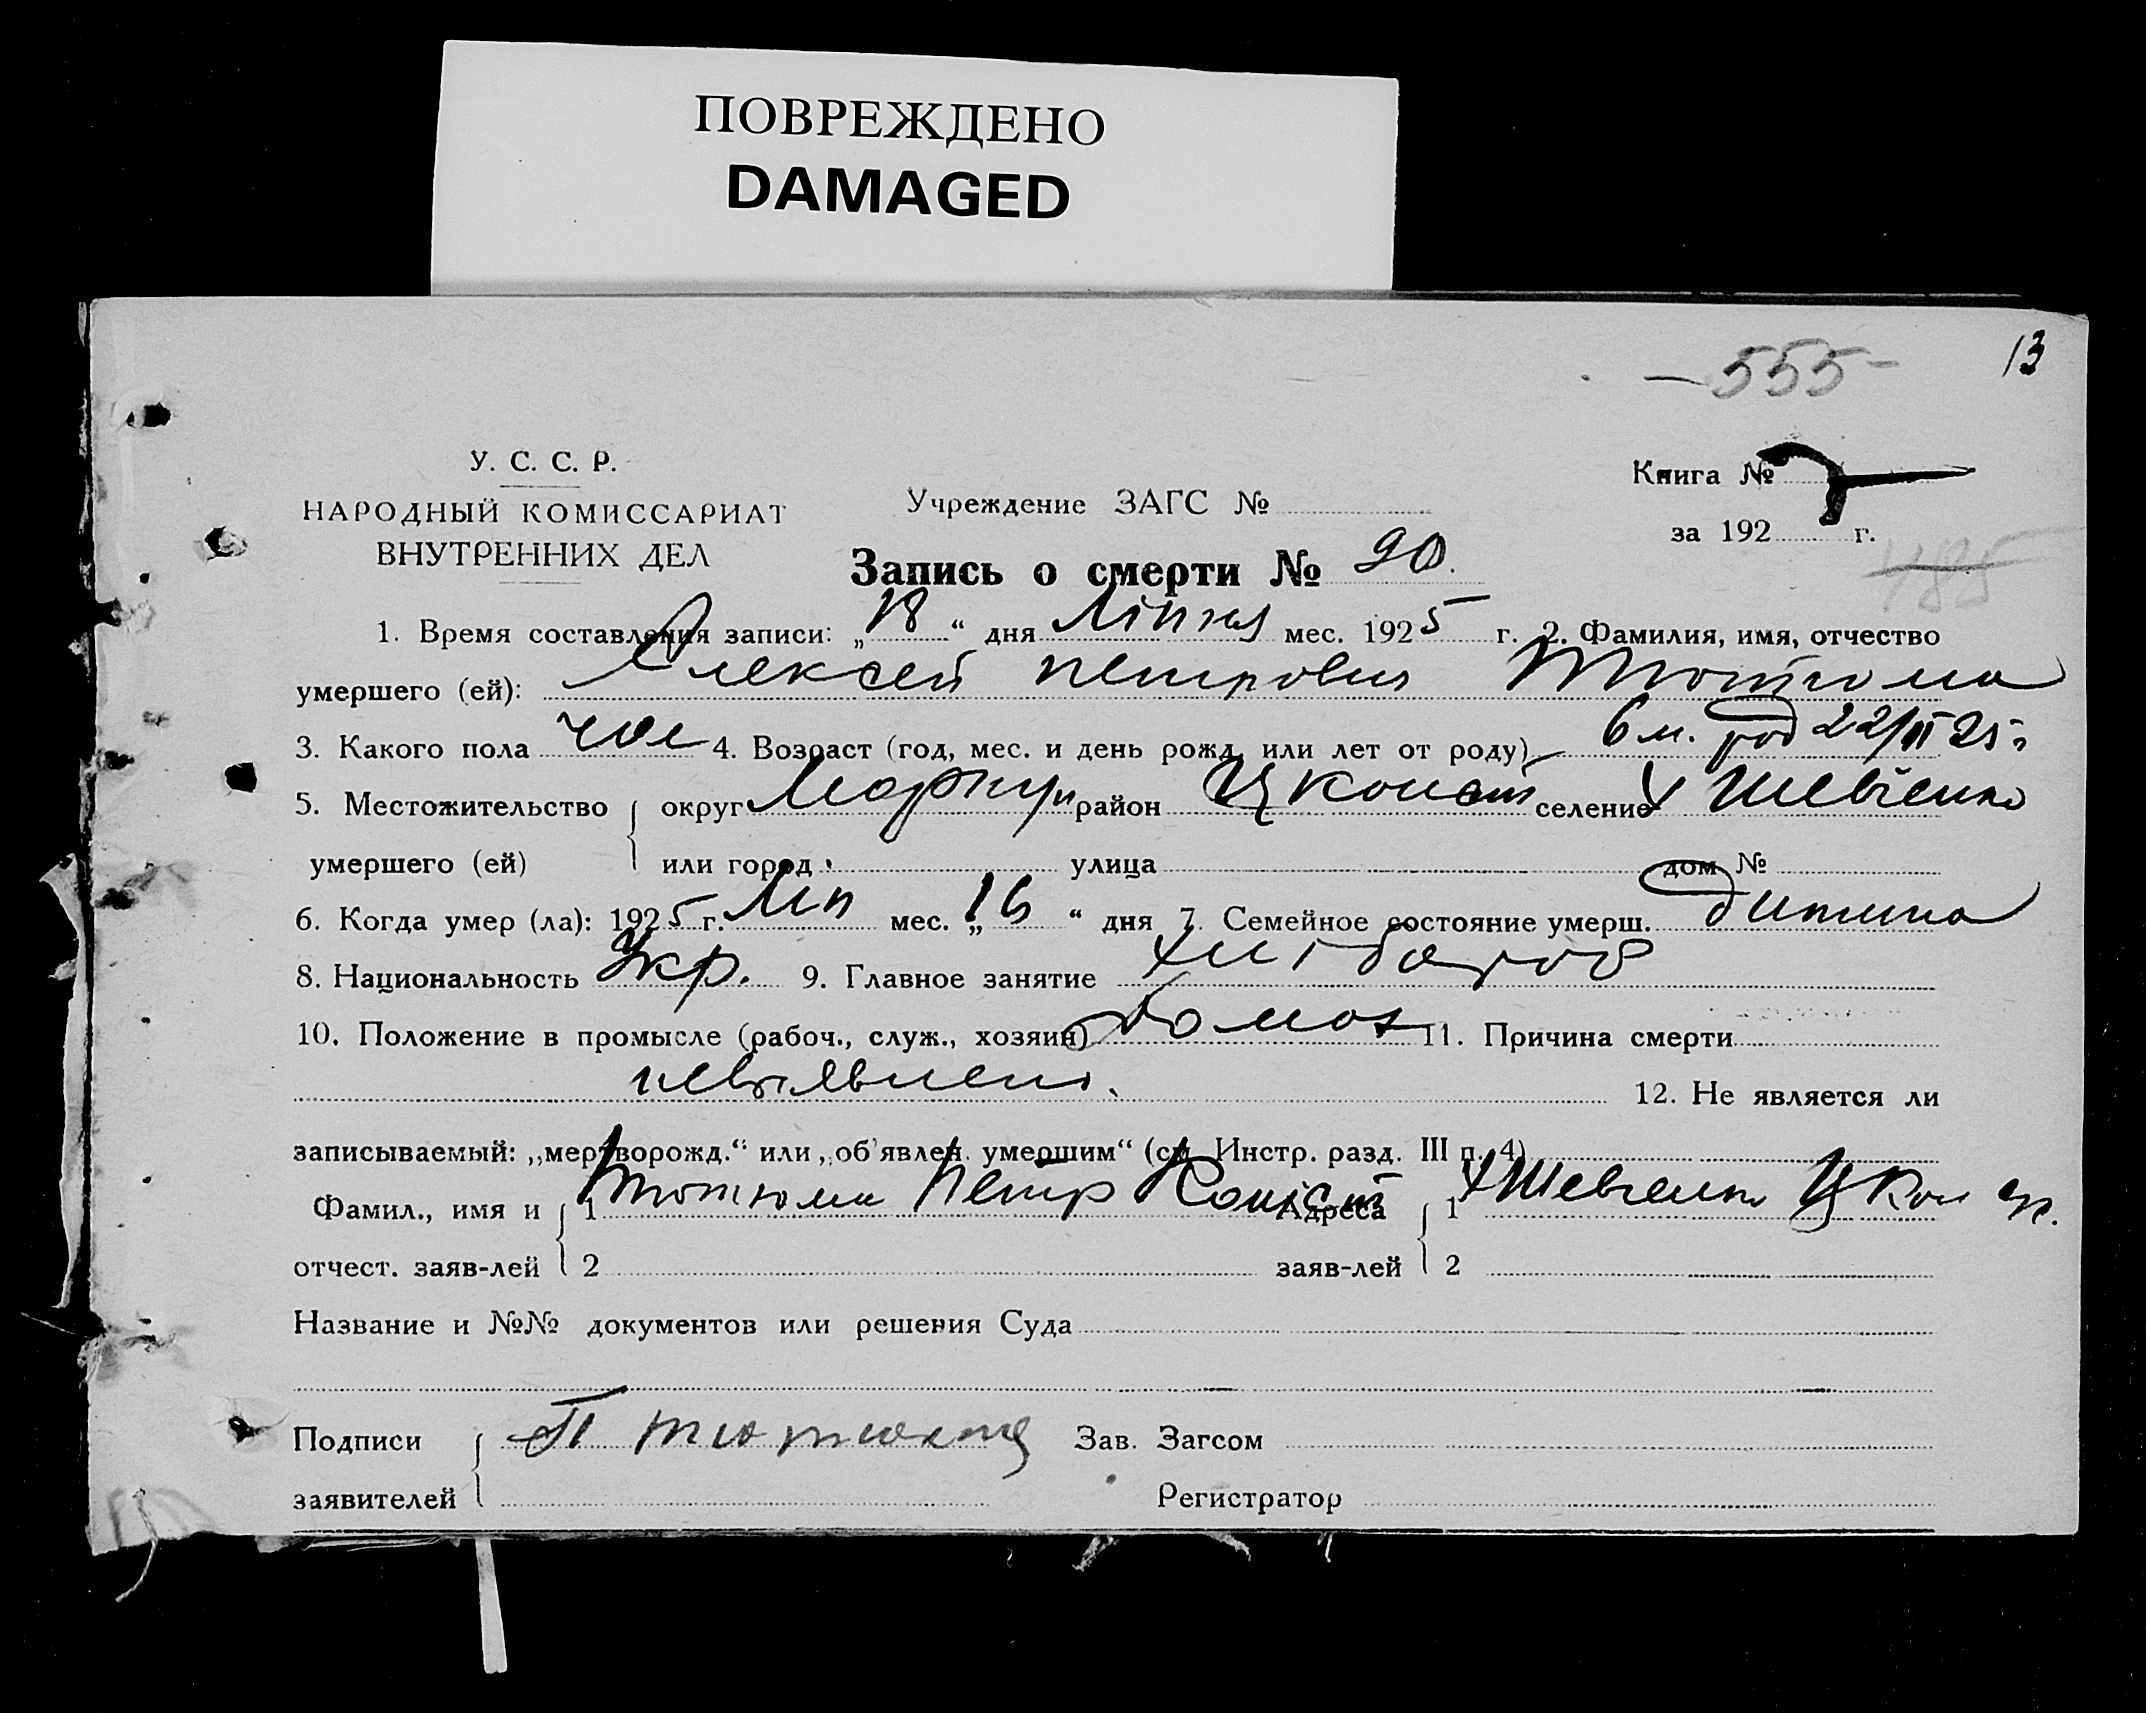 ПОВРЕЖДЕНО
DAMAGED
13
—555—
У. С. С. Р.
НАРОДНЫЙ КОМИССАРИАТ
ВНУТРЕННИХ ДЕЛ
Учреждение ЗАГС №
Книга №
за 192 г.
485
Запись о смерти № 90.
1. Время составления записи: „18“ дня Липня мес. 1925 г. 2. Фамилия, имя, отчество
умершего (ей): Алексей Петрович
3. Какого пола чол 4. Возраст (год, мес. и день рожд. или лет от роду) 6 м. род 22/II 25 г
5. Местожительство округ район селение Х Шевченко
умершего (ей) или город улица дом №
6. Когда умер (ла): 1925 г. Лип мес. „16“ дня 7. Семейное состояние умерш. дитина
8. Национальность Укр. 9. Главное занятие хлібороб
10. Положение в промысле (рабоч., служ., хозяин) 11. Причина смерти
12. Не является ли
записываемый: „мертворожд.“ или „об'явлен. умершим“ (см. Инстр. разд. III п. 4)
Фамил., имя и 1 Петр Адреса 1 Х Шевченко
отчест. заяв-лей 2 заяв-лей 2
Название и №№ документов или решения Суда
Подписи П Зав. Загсом
заявителей Регистратор